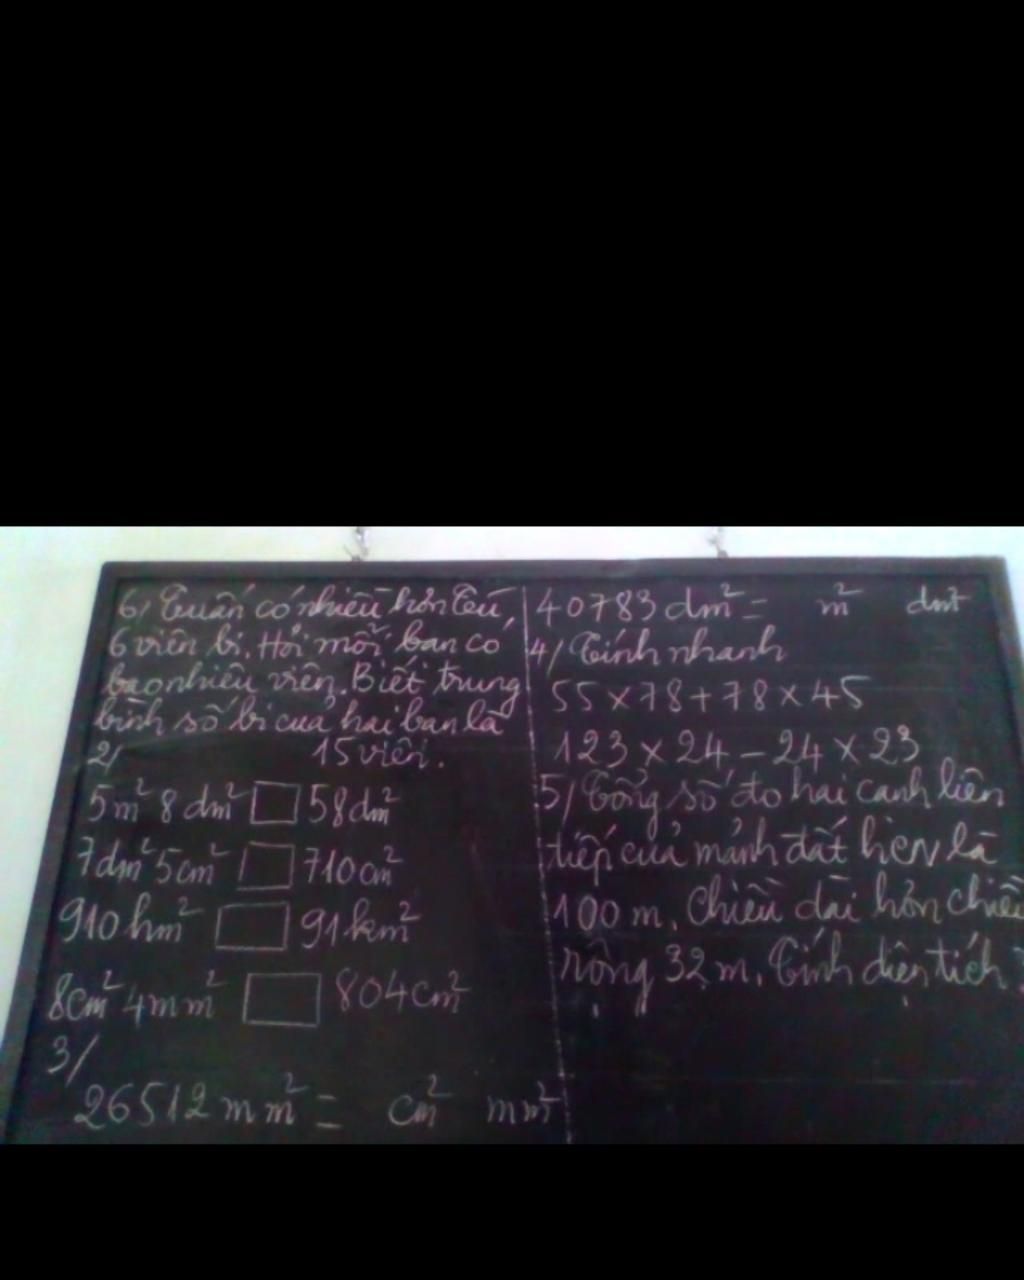 6/ Tuấn có nhiều hơn Tú,
6 viên bi. Hỏi mỗi bạn có
bao nhiêu viên. Biết trung
bình số bi của hai bạn là
15 viên.
2/
5m² 8dm² □ 58dm²
7dm² 5cm² □ 710cm²
910hm² □ 91km²
8cm² 4mm² □ 804cm²
3/
26512mm² = cm² mm²
40783dm² = m² dm²
4/ Tính nhanh
55 × 78 + 78 × 45
123 × 24 - 24 × 23
5/ Tổng số đo hai cạnh liên
tiếp của mảnh đất hcn là
100 m. Chiều dài hơn chiều
rộng 32 m. Tính diện tích